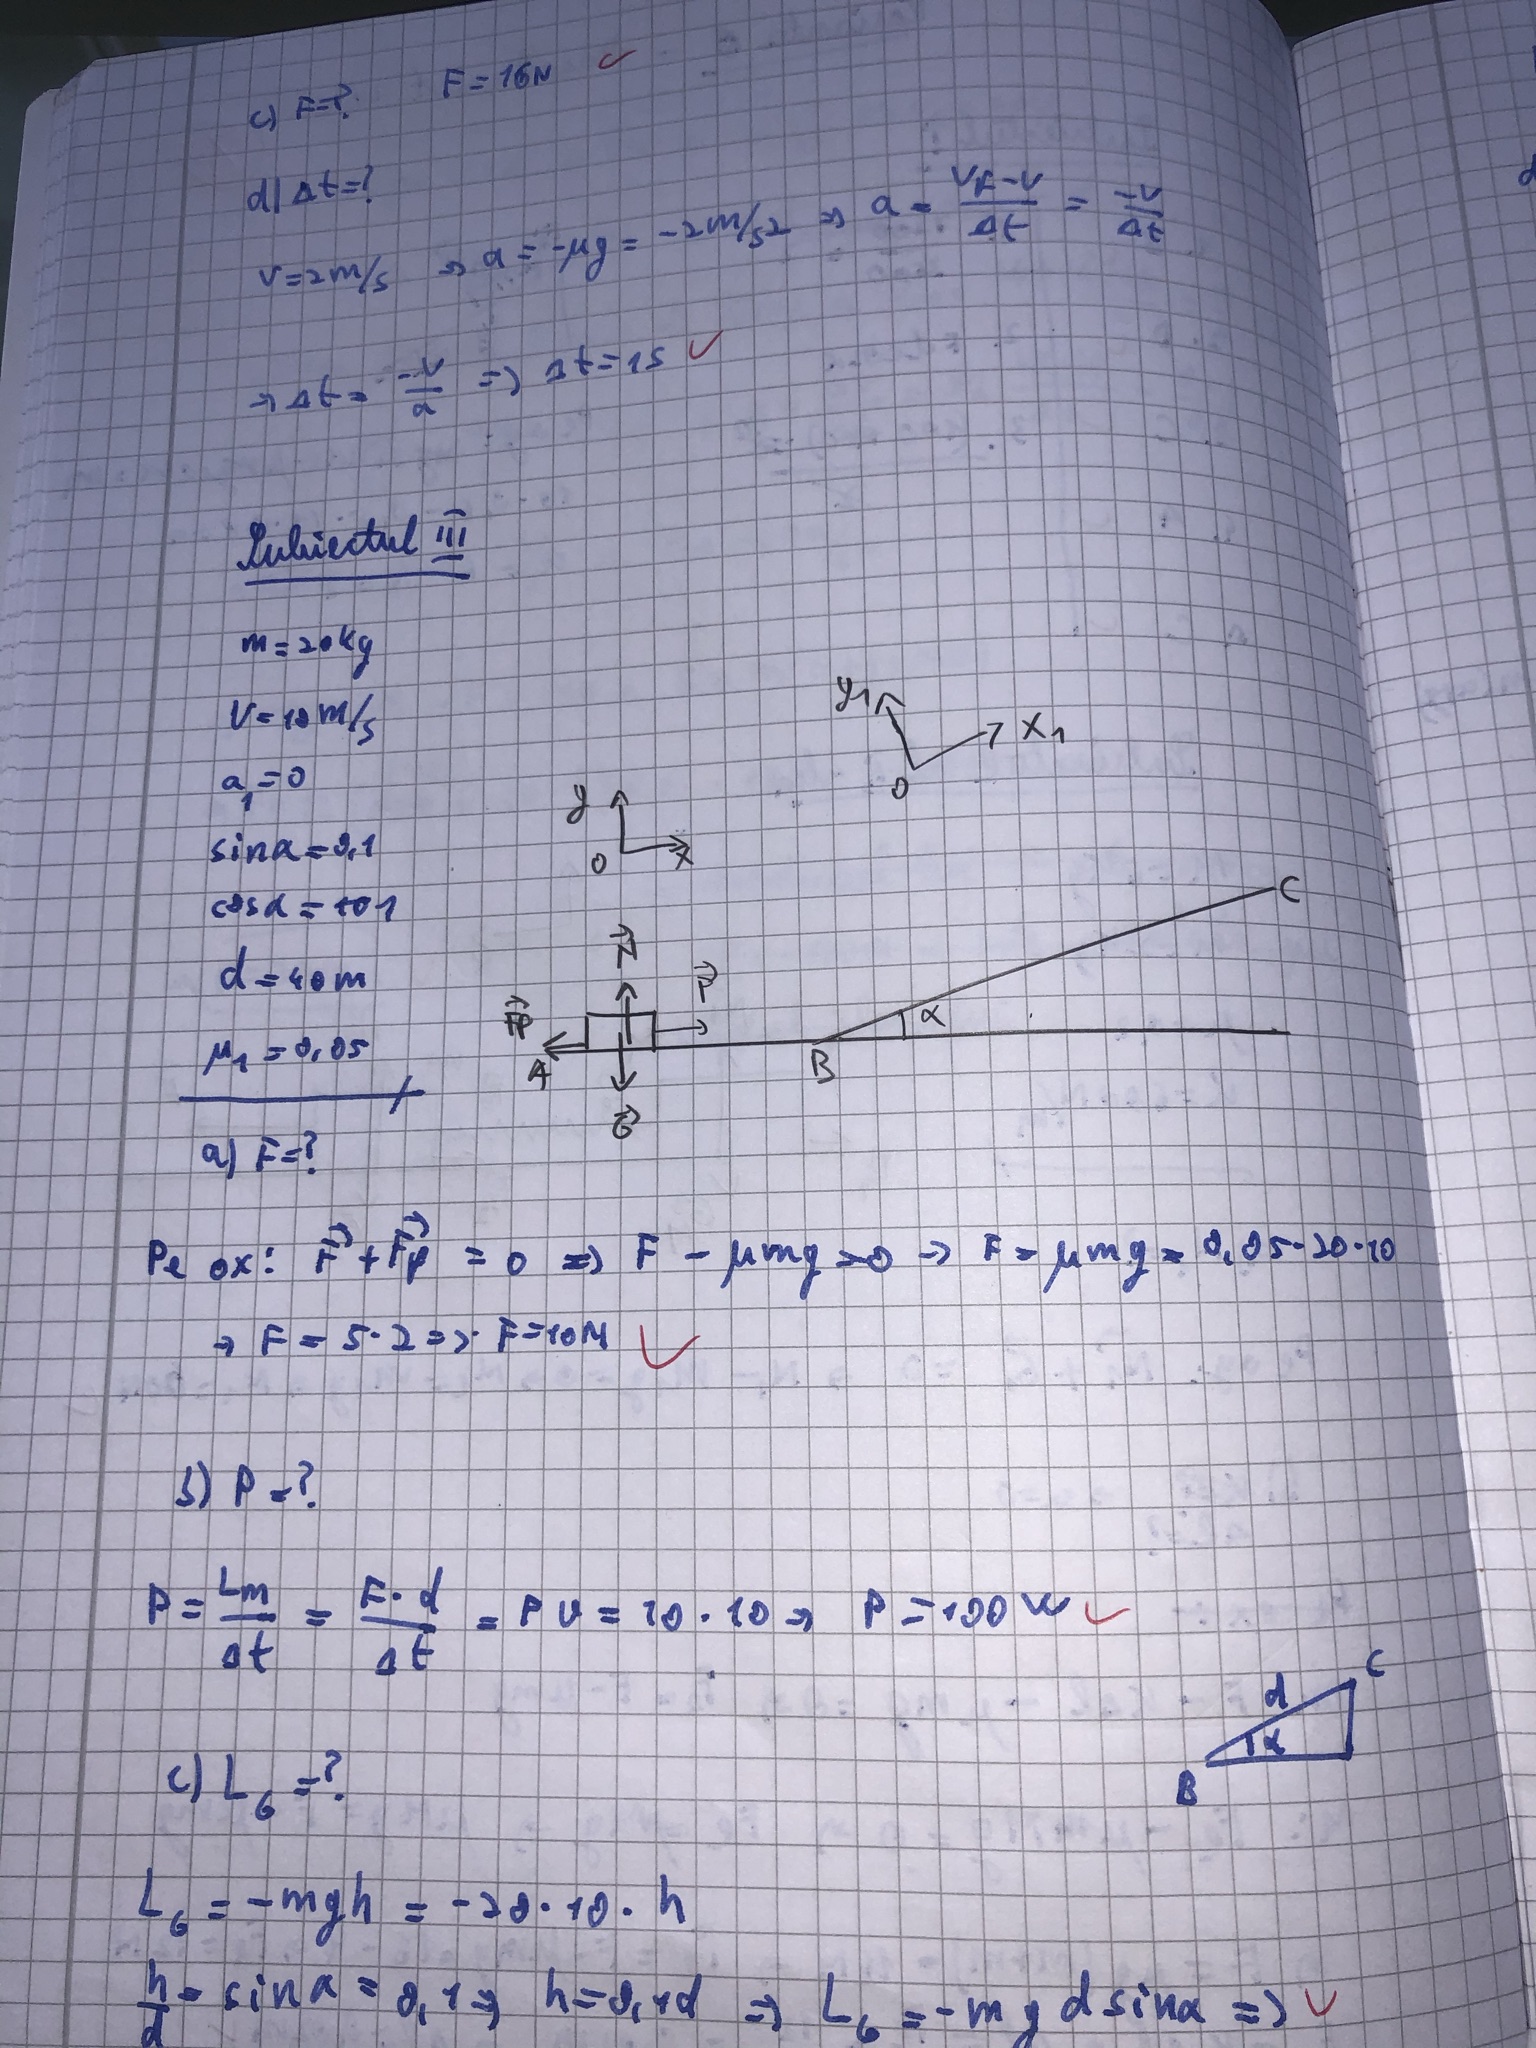 c) F=? F=16N ✓
d) Δt=?
v=2m/s ⇒ a=-μg=-2m/s2 ⇒ a=\frac{vf-v}{Δt}=\frac{-v}{Δt}
⇒ Δt=\frac{-v}{a} ⇒ Δt=1s ✓
Subiectul III
m=20kg
v=10m/s
a1=0
sinα=0,1
cosα=
d=40m
μ1=0,05
y1
x1
O
y
O
x
C
N
F
Ff
α
A
B
G
a) F=?
Pe ox: F+Ff=0 ⇒ F-μmg=0 ⇒ F=μmg=0,05·20·10
⇒ F=5·2 ⇒ F=10N ✓
b) P=?
P=\frac{Lm}{Δt}=\frac{F·d}{Δt}=Fv=10·10 ⇒ P=100W ✓
C
d
α
B
c) LG=?
LG=-mgh=-20·10·h
\frac{h}{d}=sinα=0,1 ⇒ h=0,1d ⇒ LG=-mg d sinα ⇒ ✓